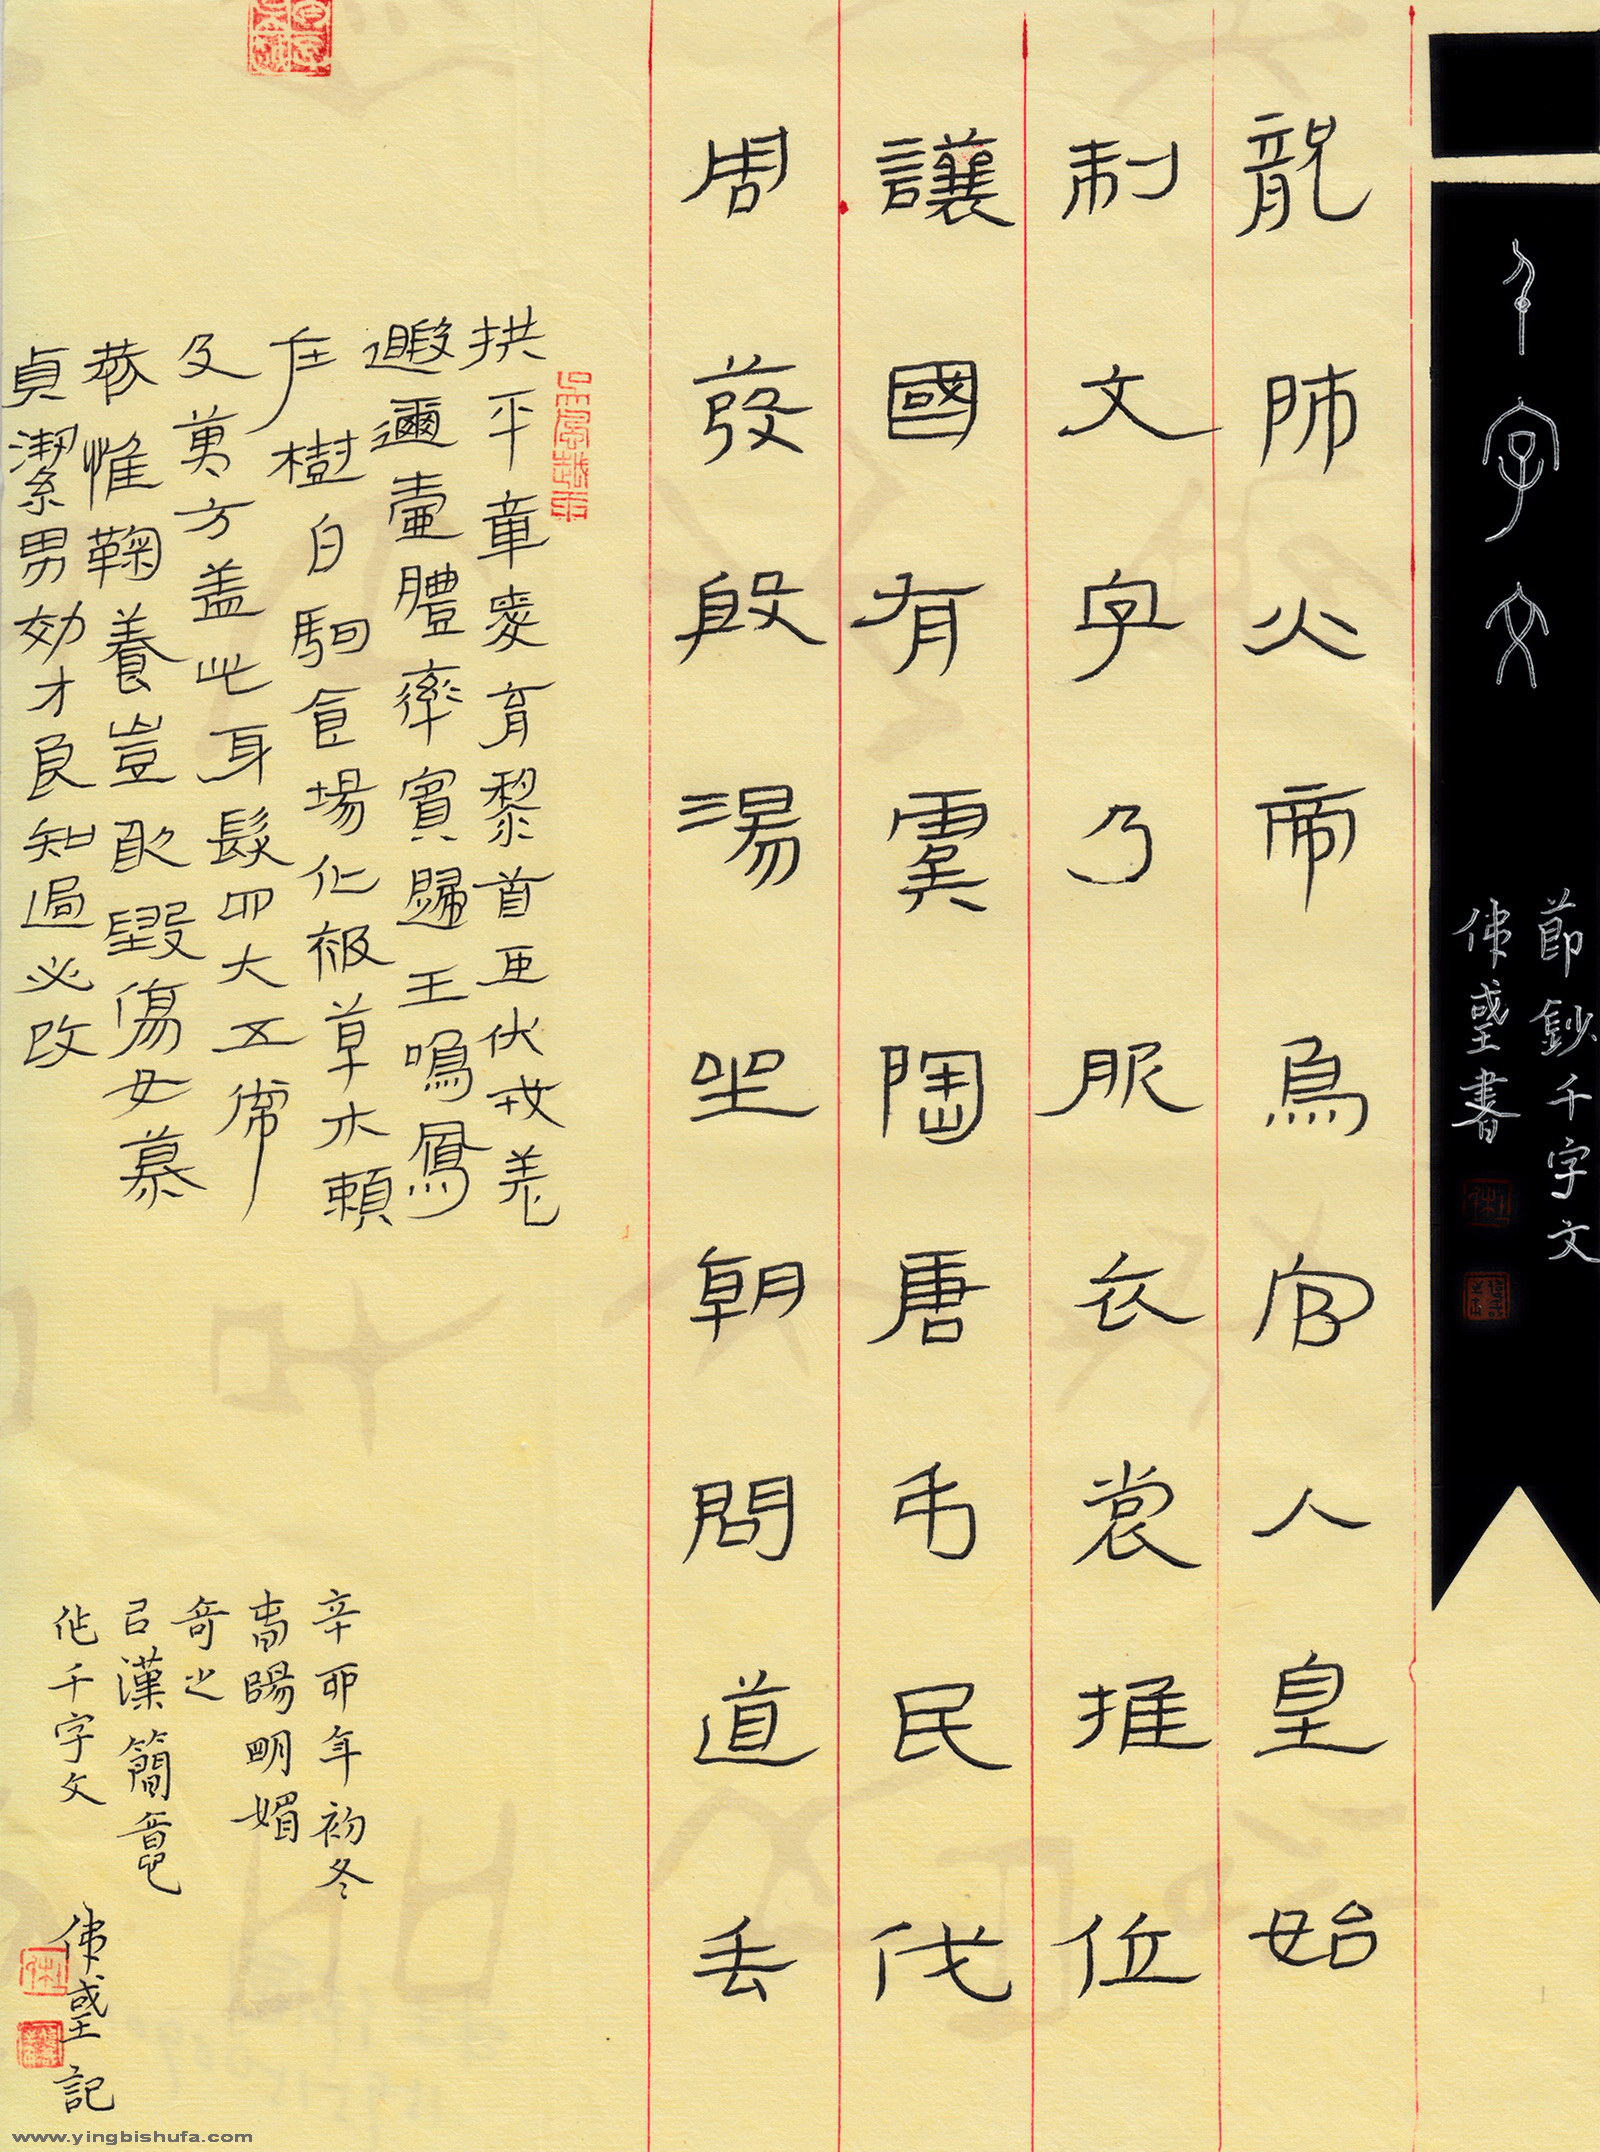 千字文
節鈔千字文
書
龍師火帝鳥官人皇始
制文字乃服衣裳推位
讓國有虞陶唐弔民伐
周發殷湯坐朝問道垂
拱平章愛育黎首臣伏戎羌
遐邇壹體率賓歸王鳴鳳
在樹白駒食場化被草木賴
及萬方蓋此身髮四大五常
恭惟鞠養豈敢毀傷女慕
貞潔男効才良知過必改
辛卯年初冬
陽明媚
奇之
㠯漢簡意
作千字文
記
www.yingbishufa.com